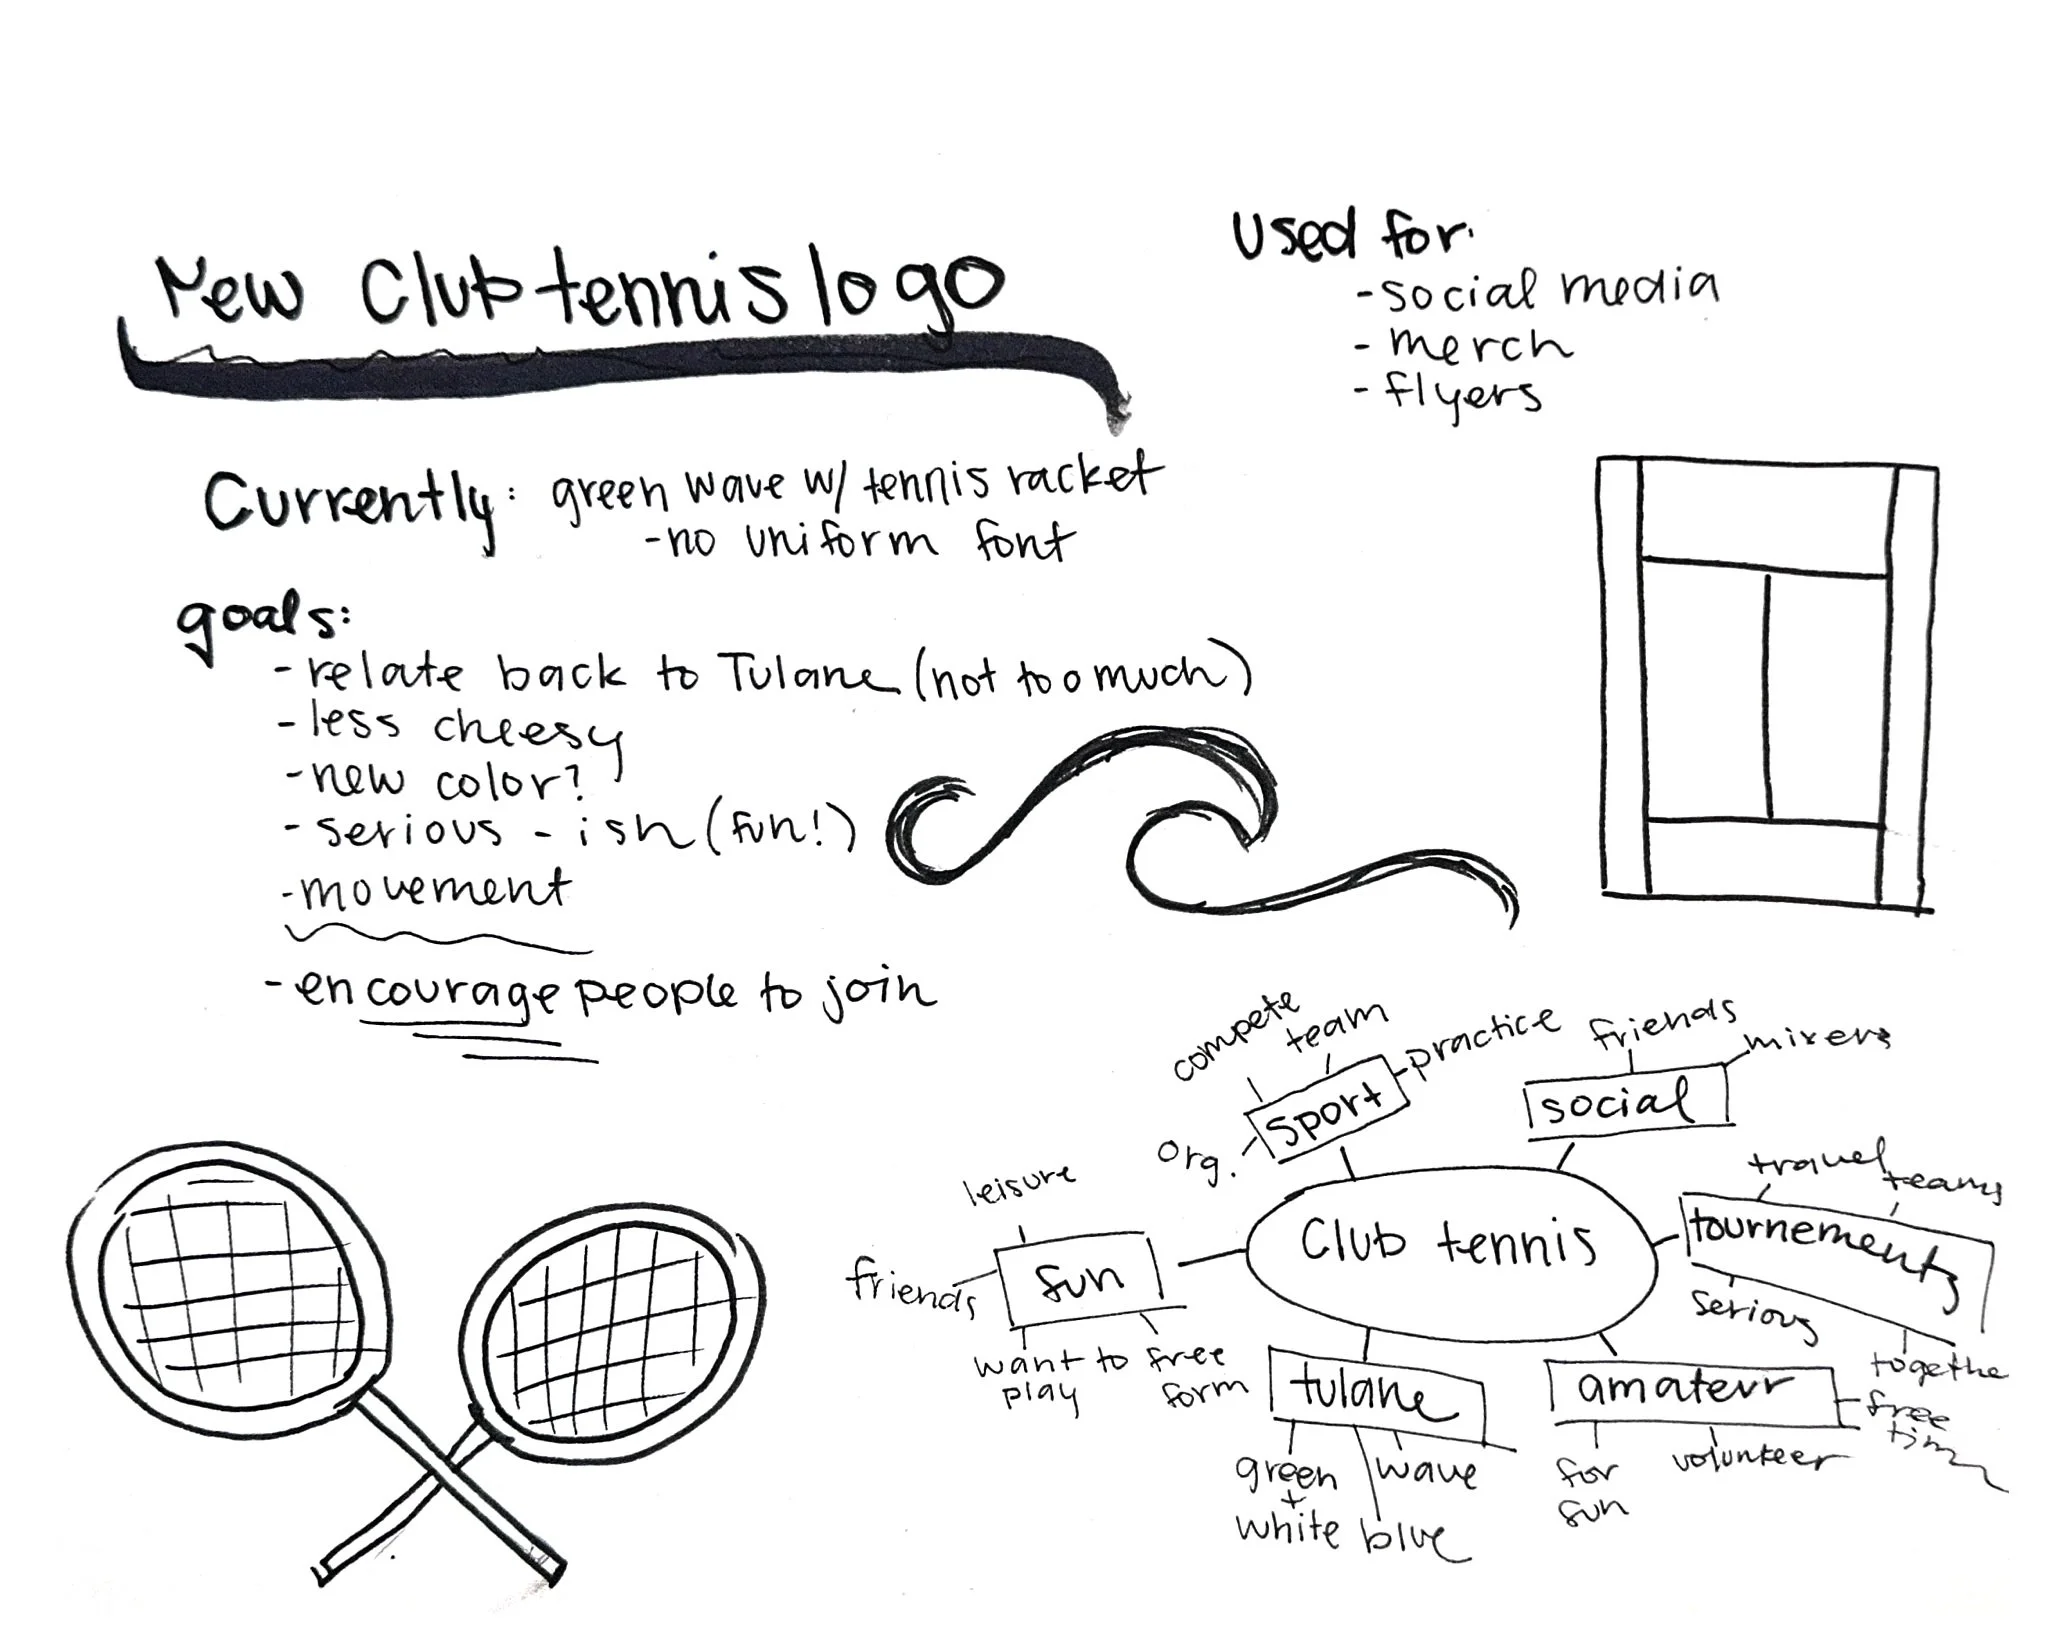 New Club tennis logo
Currently: green wave w/ tennis racket
-no uniform font
goals:
-relate back to Tulane (not too much)
-less cheesy
-new color?
-serious-ish (fun!)
-movement
-encourage people to join
Used for:
-social media
-merch
-flyers
Club tennis
sport
compete
team
practice
org.
social
friends
mixers
tournements
travel
teams
serious
togethe
amateur
free
time
volunteer
for
fun
tulane
green
+
white
blue
wave
fun
leisure
friends
want to
play
free
form